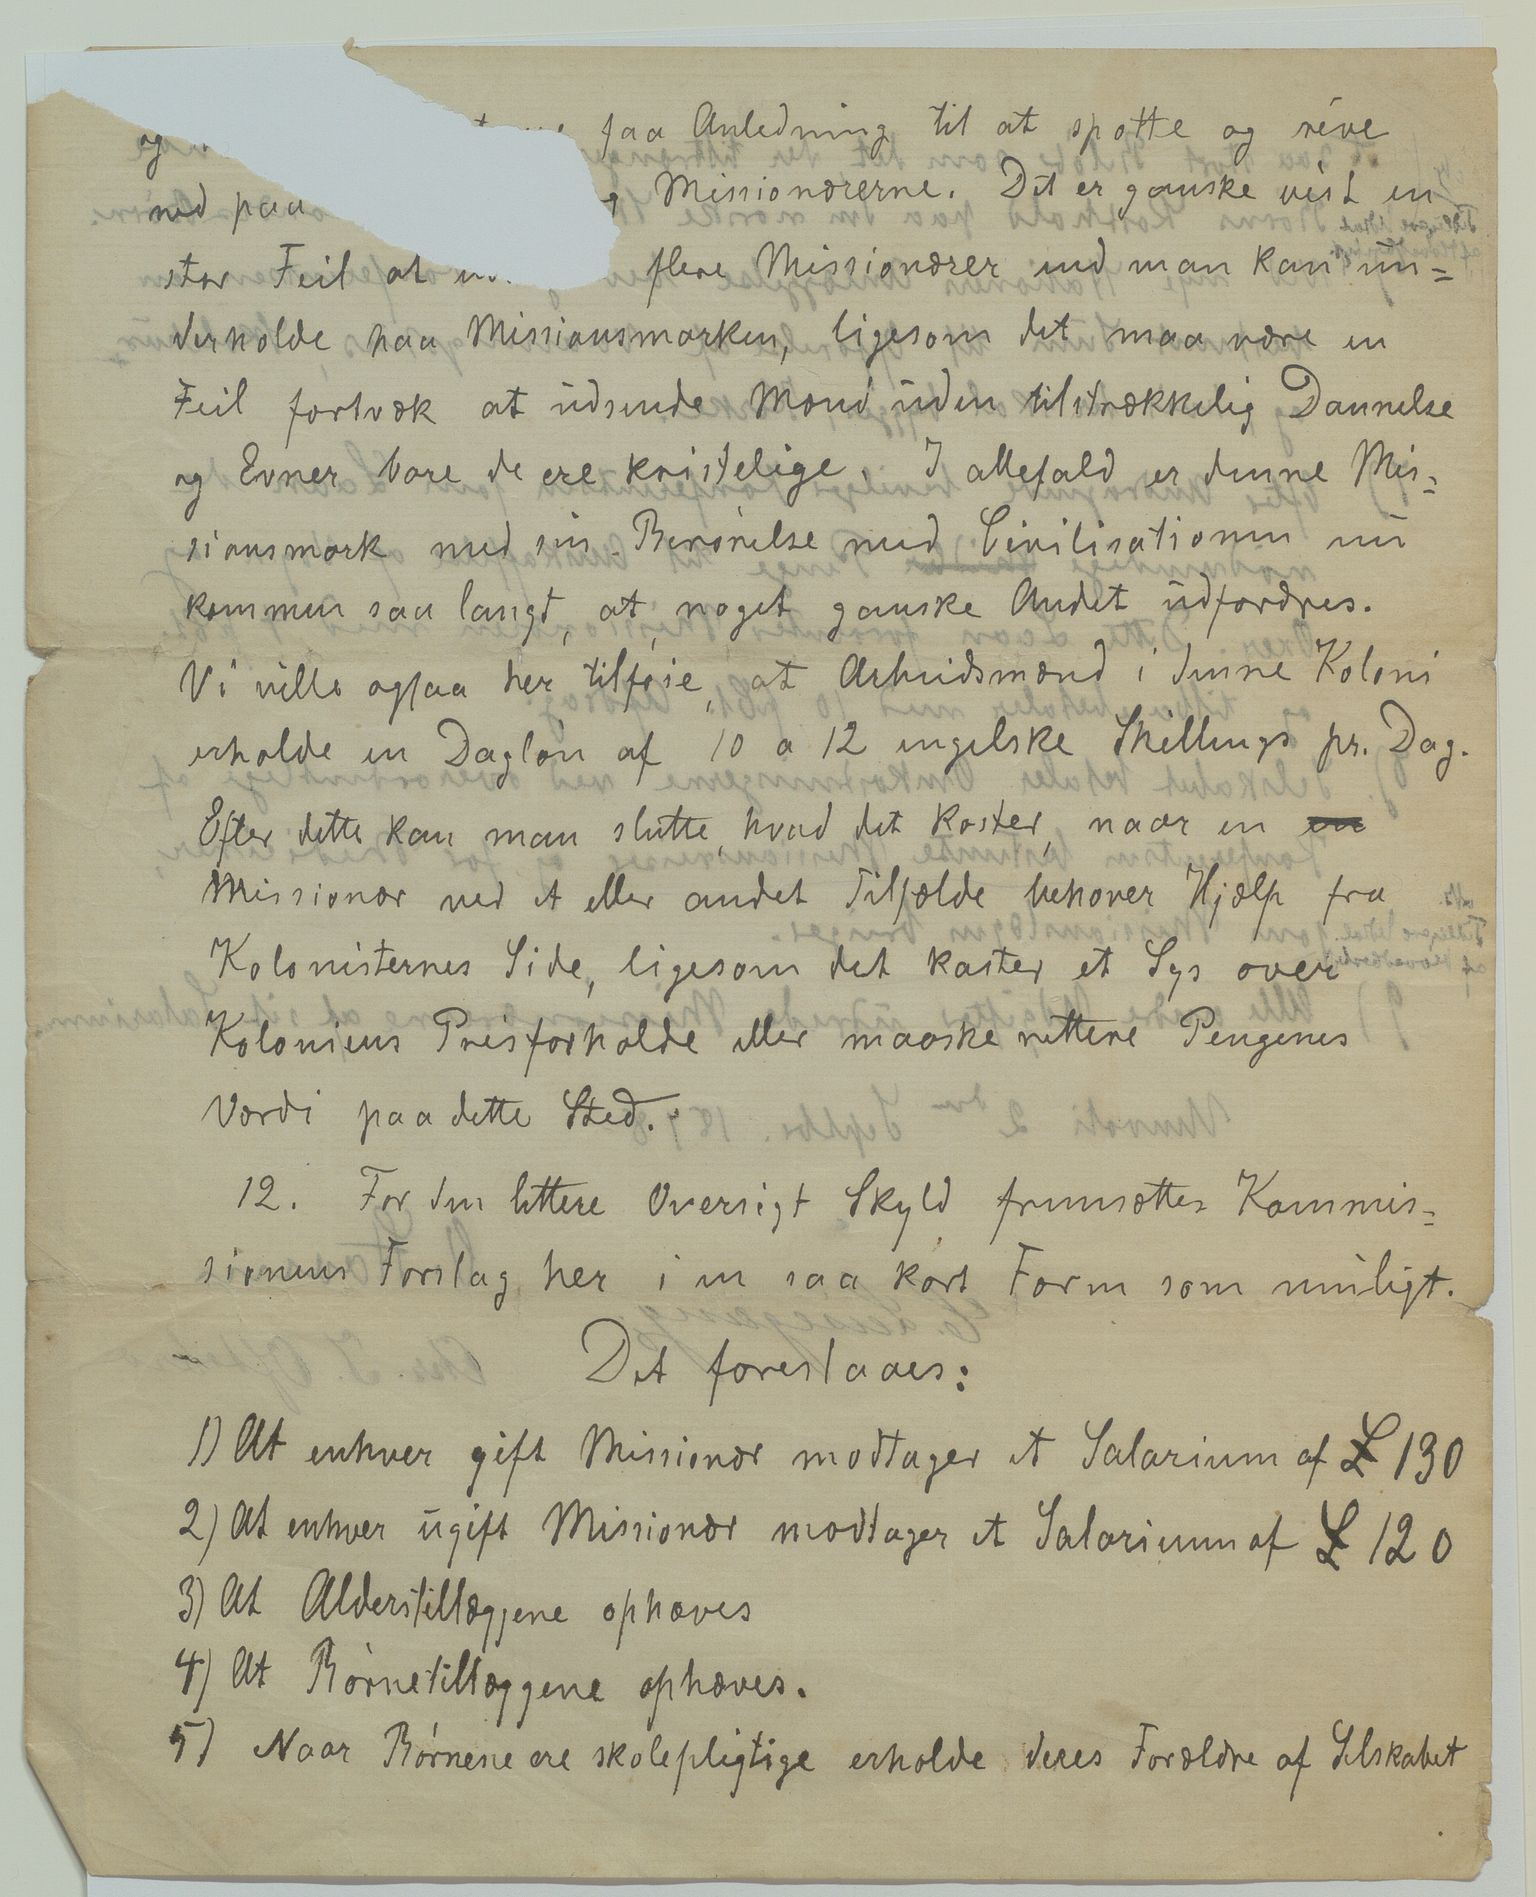 og faa Anledning til at spotte og rive
ned paa Missionærerne. Det er ganske vist en
stor Feil at flere Missionærer end man kan un=
derholde paa Missionsmarken, ligesom det maa være en
Feil fortvæk at udsende Mænd uden tilstrækkelig Dannelse
og Evner bare de ere kristelige. I allefald er denne Mis=
sionsmark med sin Berørelse med Civilisationen nu
kommen saa langt, at noget ganske Andet udfordres.
Vi ville ogsaa her tilføie, at Arbeidsmænd i denne Koloni
erholde en Dagløn af 10 a 12 engelske Shillings pr. Dag.
Efter dette kan man slutte, hvad det koster, naar en en
Missionær ved et eller andet Tilfælde behøver Hjælp fra
Kolonisternes Side, ligesom det kaster et Lys over
Koloniens Prisforholde eller maaske rettere Pengenes
Værdi paa dette Sted.
12. For den lettere Oversigt Skyld fremsættes Kommis=
sionens Forslag her i en saa kort Form som muligt.
Det foreslaaes:
1) At enhver gift Missionær modtager et Salarium af £ 130
2) At enhver ugift Missionær modtager et Salarium af £ 120
3) At Alderstillæggene ophæves
4) At Børnetillæggene ophæves.
5) Naar Børnene ere skolepligtige erholde deres Forældre af Selskabet